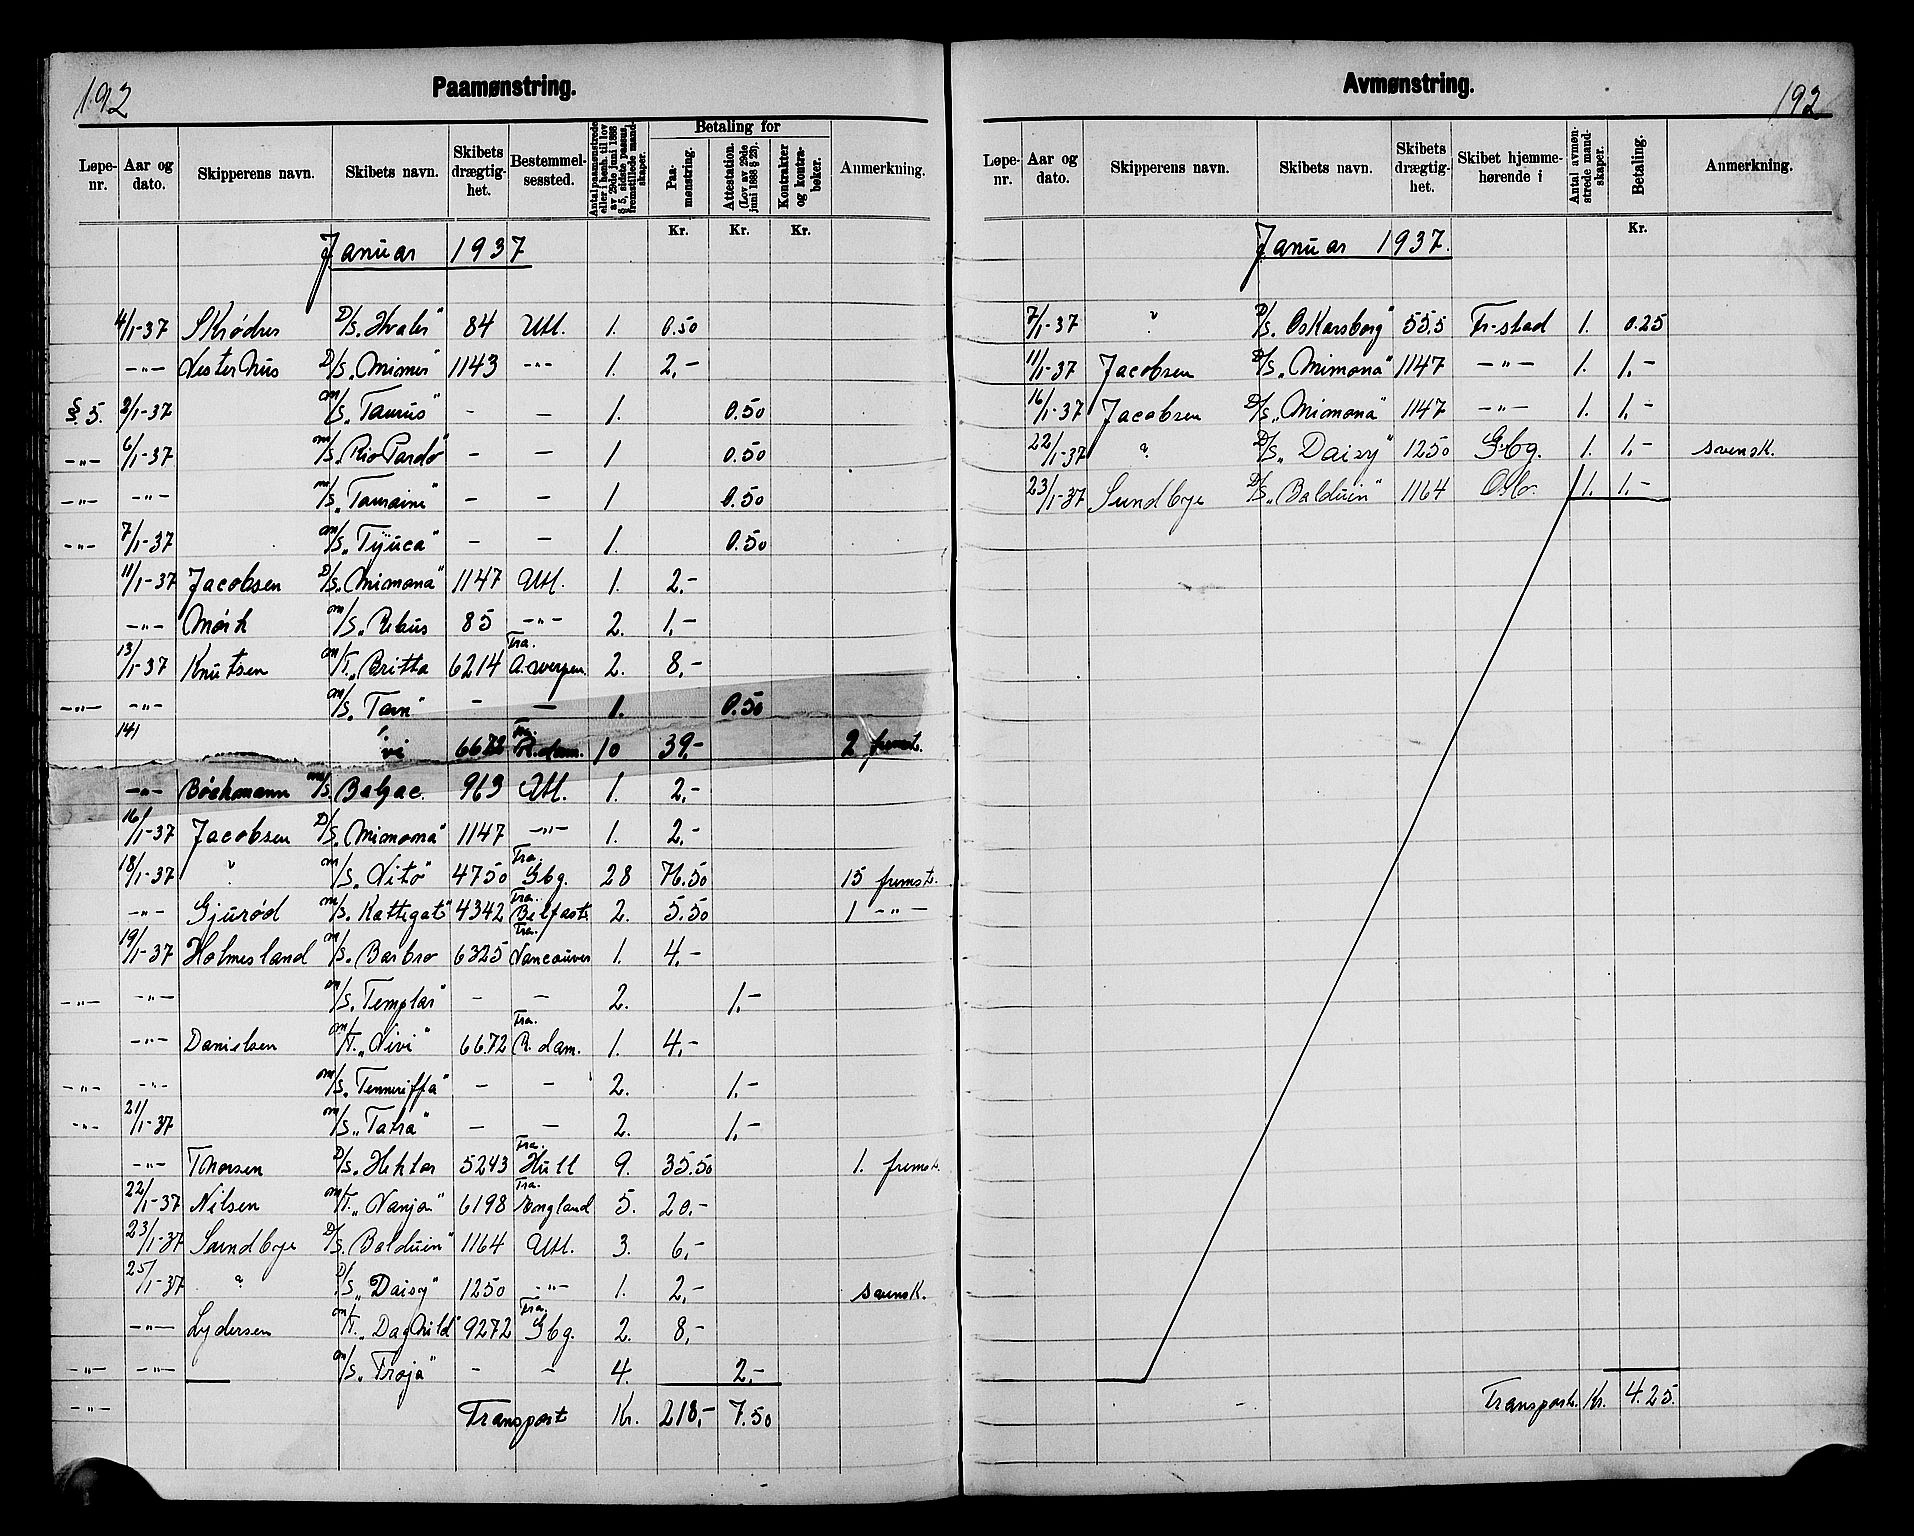 192
Paamønstring.
Løpe-nr. Aar og dato. Skipperens navn. Skibets navn. Skibets drægtig-het. Bestemmel-sessted. Antal paamønstrede eller i henh. til lov av 29de juni 1888 § 5, sidste passus, fremstillede mand-skaper. Betaling for Paa-mønstring. Attestation. (Lov av 29de juni 1888 § 23). Kontrakter og kontra-bøker. Anmerkning.
Kr. Kr. Kr.
Januar 1937
4/1-37 Skrødner D/S. Hvaler" 84 Utl. 1. 0.50
-"- Vesterhus D/S. "Mimer" 1143 -"- 1. 2,-
§. 5. 2/1-37 m/S. "Taurus" - - 1. 0.50
-"- 6/1-37 m/S. "Rio Pardo" - - 1 0.50
-"- -"- m/S. "Touraine" - - 1 0.50
-"- 7/1-37 m/S. "Tijuca" - - 1. 0.50
11/1-37 Jacobsen D/S. "Mimona" 1147 Utl. 1. 2,-
-"- Mørk m/S. "Rebus 85 -"- 2. 1,-
13/1-37 Knutsen m/T. "Britta 6214 Fra. A.werpen. 2. 8,-
-"- -"- m/S. "Tarn" - - 1. 0.50
14/ vi 6672 Fra. R.dam. 10 39,- 2 fremst.
-"- Bøckmann m/S. Balzac. 963 Utl. 1. 2,-
16/1-37 Jacobsen D/S. "Mimona" 1147 -"- 1. 2,-
18/1-37 ? m/S. "Vito" 4750 Fra. Gbg. 28 76.50 15 fremst.
-"- Gjurød m/S. Kattegat" 4342 Fra. Belfast. 2. 5.50 1 -"-
19/1-37 Holmesland m/S. Barbro 6325 Fra. Vancouver 1. 4,-
-"- -"- m/S. "Templar" - - 2. 1,-
-"- Danielsen m/T. "Vivi" 6672 Fra. R.dam. 1. 4,-
-"- -"- m/S. "Teneriffa" - - 2. 1,-
-"- 21/1-37 m/S. "Tatra" - - 2. 1,-
-"- Thorsen D/S. "Hektor 5243 Fra. Hull 9. 35.50 1. fremst.
22/1-37 Nilsen m/T. "Vanja" 6198 Fra. England 5. 20,-
23/1-37 Sundbye D/S. "Balduin" 1164 Utl. 3. 6,-
25/1-37 ? D/S. "Daisy" 1250 -"- 1. 2,- svensk.
-"- Lydersen m/T. "Daghild" 9272 Fra. Gbg. 2. 8,-
-"- -"- m/S. "Troja" - - 4. 2,-
-"- Transport Kr. 218,- 7.50
Avmønstring.
192
Løpe-nr. Aar og dato. Skipperens navn. Skibets navn. Skibets drægtig-het. Skibet hjemme-hørende i Antal avmøn-strede mand-skaper. Betaling. Anmerkning.
Kr.
Januar 1937.
7/1-37 ? D/S. Oskarsborg" 55.5 Fr-stad 1. 0.25
11/1-37 Jacobsen D/S. "Mimona" 1147 -"- 1. 1,-
16/1-37 Jacobsen D/S. "Mimona" 1147 -"- 1. 1,-
22/1-37 ? D/S. "Daisy" 1250 Gbg. 1. 1,- svensk.
23/1-37 Sundbye D/S. "Balduin" 1164 Oslo. 1. 1,-
Transport. Kr. 4.25.